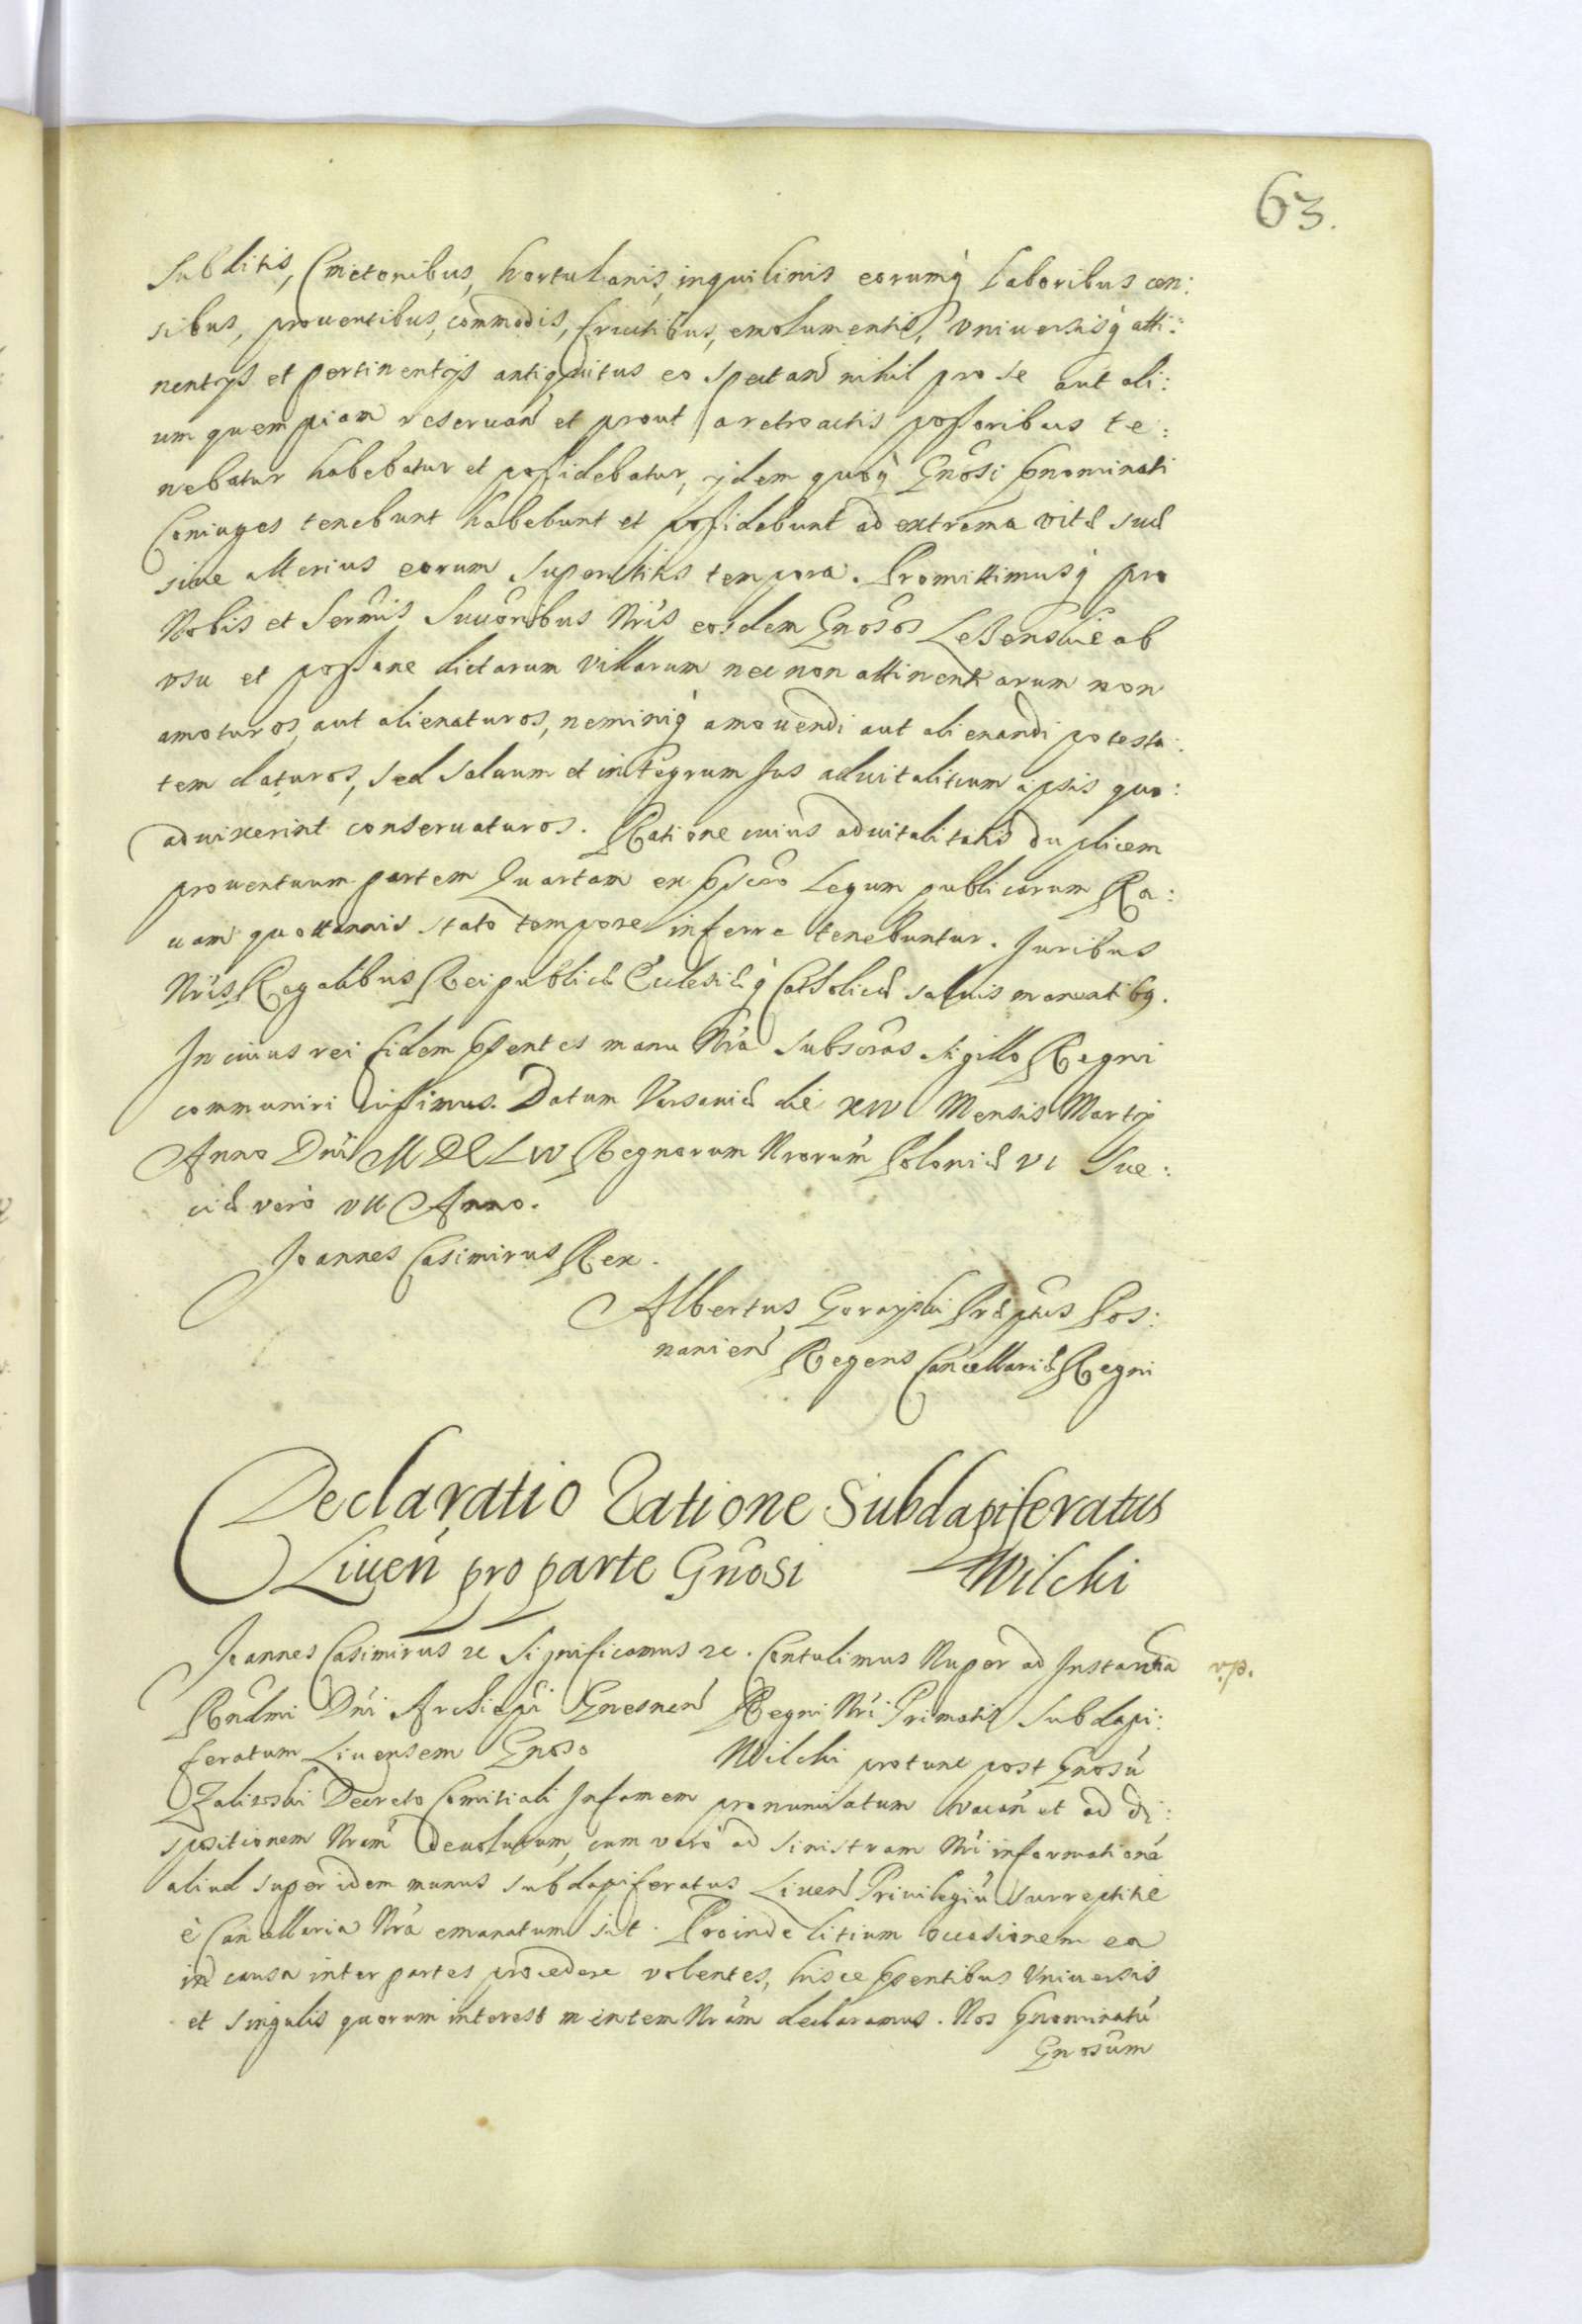 63.
Subditis, Cmetonibus, hortulanis, inquilinis eorumq̀ laboribus cen:
sibus, prouentibus, commodis, fructibus, emolumentis, vniuersisq̀ atti:
nentijs et pertinentijs antiquitus eo spectan̄ nihil pro se aut ali:
um quempiam reseruan̄ et prout a retroactis possoribus te:
nebatur habebatur et possidebatur, ijdem quoq̀ Gnosi pnominati
Coniuges tenebunt habebunt et possidebunt ad extrema vitæ suæ
siue alterius eorum superstitis tempora. Promittimusq̀ pro
Nobis et Sermis Succoribus Nris eosdem Gnosos ab
vsu et possione dictarum villarum nec non attinentiarum non
amoturos, aut alienaturos, neminiq̀ amouendi aut alienandi potesta:
tem daturos, sed saluum et integrum Jus aduitalitium ipsis quo:
aduixerint conseruaturos. Ratione cuius aduitalitatis duplicem
prouentuum partem Quartam ex pscro Legum publicarum Ra:
uam quottannis stato tempore inferre tenebuntur. Juribus
Nris Regalibus Reipublicæ Ecclesiæq̀ Catholicæ saluis manentibq.
In cuius rei fidem psentes manu Nra subscras sigillo Regni
communiri iussimus. Datum Varsauiæ die XIV Mensis Martij
Anno Dni MDCLIV Regnorum Nrorum Poloniæ VI Sue:
ciæ vero VII Anno.
Joannes Casimirus Rex.
Albertus Gorayski Præptus Pos:
nanien̄ Regens Cancellariæ Regni
Declaratio Ratione Subdapiferatus
Liuen̄ pro parte Gnosi Wilcki
Joannes Casimirus &c Significamus &c. Contulimus Nuper ad Instantia
Rndmi Dni Archiepi Gnesnen̄ Regni Nri Primatis Subdapi:
feratum Liuensem Gnoso Wilcki protunc post Gnosu
Zaliwski Decreto Comitiali Infamem pronunciatum vacan̄ et ad di:
spositionem Nram deuolutum, cum vero ad sinistram Nri informatione
aliud super idem munus subdapiferatus Liuen̄ Priuilegiu surreptitie
è Cancellaria Nra emanatum sit. Proinde litium occasionem ea
in causa inter partes procedere volentes, hisce psentibus Vniuersis
et singulis quorum interest mentem Nram declaramus. Nos pnominatu
Gnosum